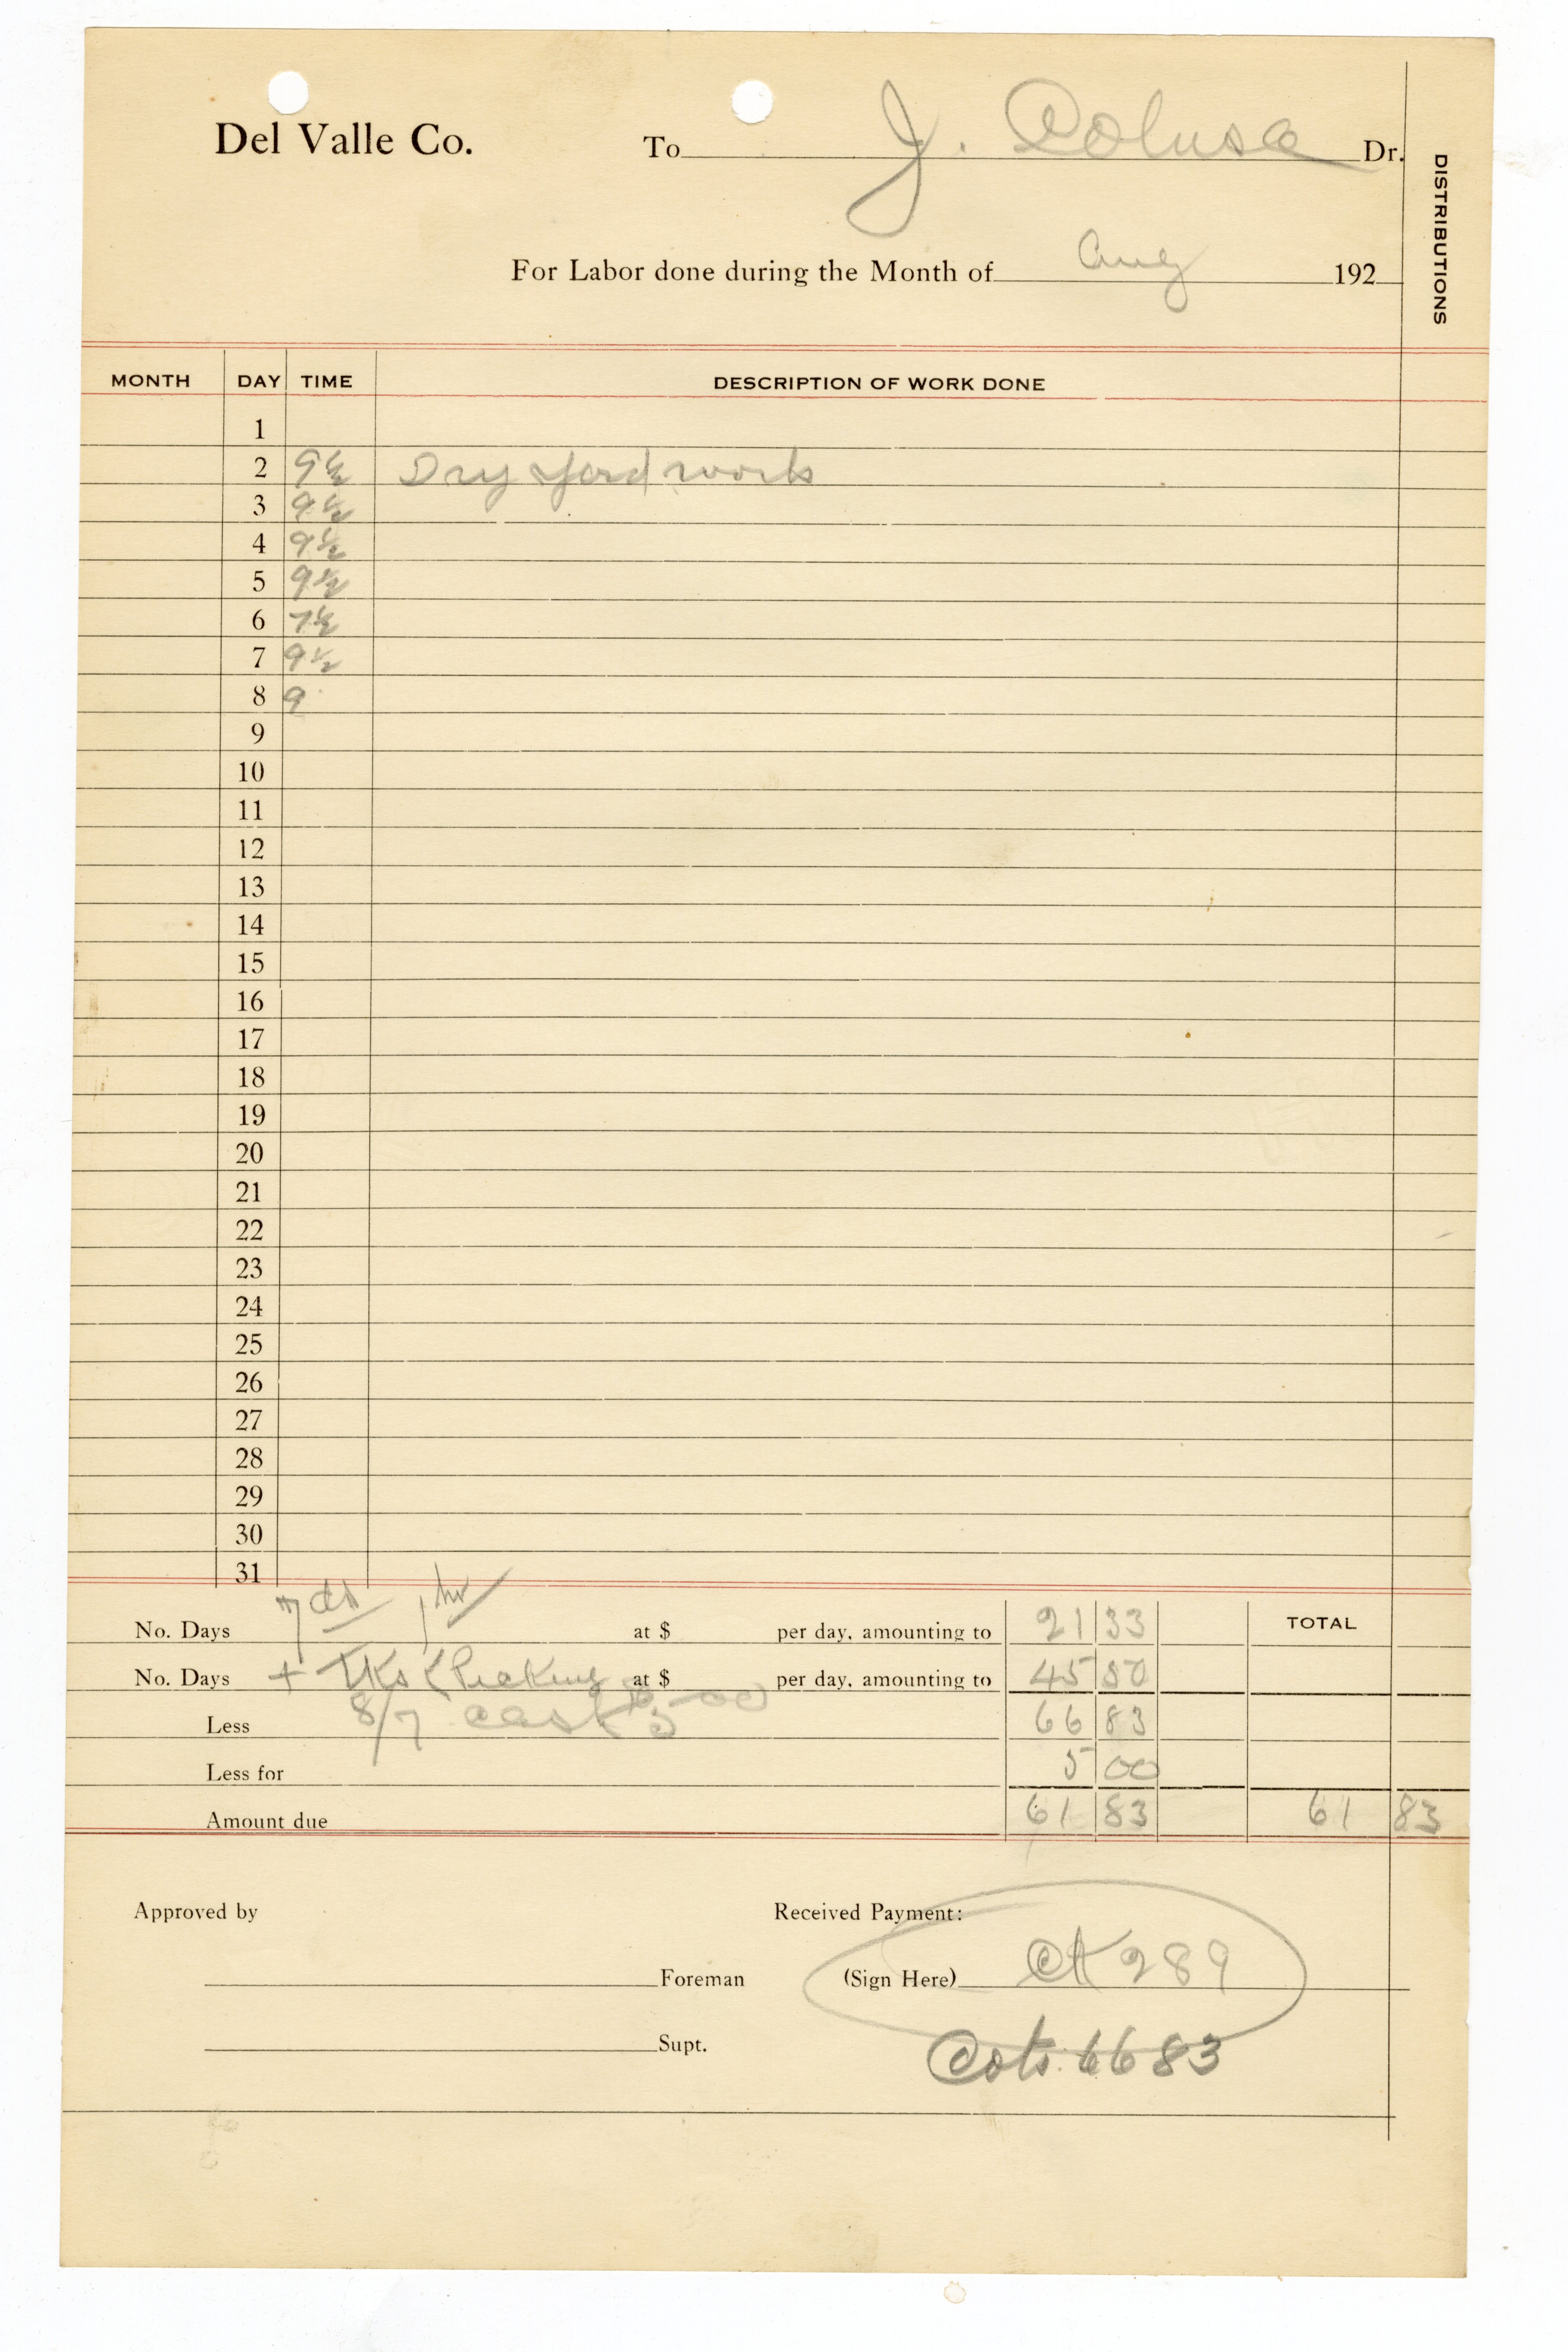 Del Valle Co. To J. Colusa Dr.
DISTRIBUTIONS
For Labor done during the Month of Aug 192
MONTH DAY TIME DESCRIPTION OF WORK DONE
1
2 9 1/2 Dry yard work
3 9 1/2
4 9 1/2
5 9 1/2
6 7 1/2
7 9 1/2
8 9
9
10
11
12
13
14
15
16
17
18
19
20
21
22
23
24
25
26
27
28
29
30
31
No. Days 7 ds 1 hr at $ per day, amounting to 21 33 TOTAL
No. Days + (Picking at $ per day, amounting to 45 50
Less 8/7 cash $5 00 66 83
Less for 5 00
Amount due 61 83 61 83
Approved by Received Payment:
Foreman (Sign Here) Ck 289
Supt. Cots. 66 83